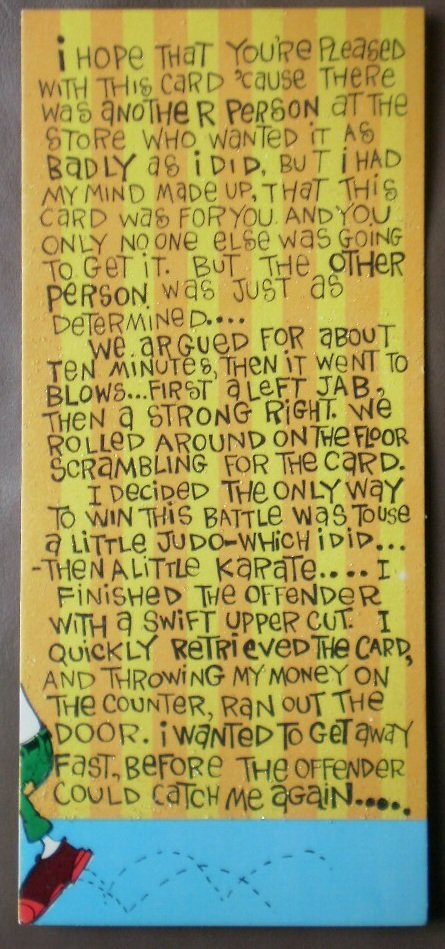 i HOPE THAT YOU'RE PLEASED
WITH THIS CARD 'CAUSE THERE
WAS ANOTHER PERSON AT THE
STORE WHO WANTED IT AS
BADLY AS i DID, BUT i HAD
MY MIND MADE UP, THAT THIS
CARD WAS FOR YOU. AND YOU
ONLY NO ONE ELSE WAS GOING
TO GET IT. BUT THE OTHER
PERSON WAS JUST AS
DETERMINED....
WE ARGUED FOR ABOUT
TEN MINUTES, THEN IT WENT TO
BLOWS...FIRST A LEFT JAB,
THEN A STRONG RIGHT. WE
ROLLED AROUND ON THE FLOOR
SCRAMBLING FOR THE CARD.
I DECIDED THE ONLY WAY
TO WIN THIS BATTLE WAS TO USE
A LITTLE JUDO-WHICH i DID...
-THEN A LITTLE KARATE.... I
FINISHED THE OFFENDER
WITH A SWIFT UPPER CUT. I
QUICKLY RETRIEVED THE CARD,
AND THROWING MY MONEY ON
THE COUNTER, RAN OUT THE
DOOR. i WANTED TO GET AWAY
FAST, BEFORE THE OFFENDER
COULD CATCH ME AGAIN.....